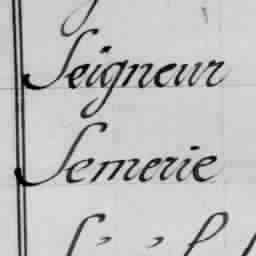 Seigneur
Semerie